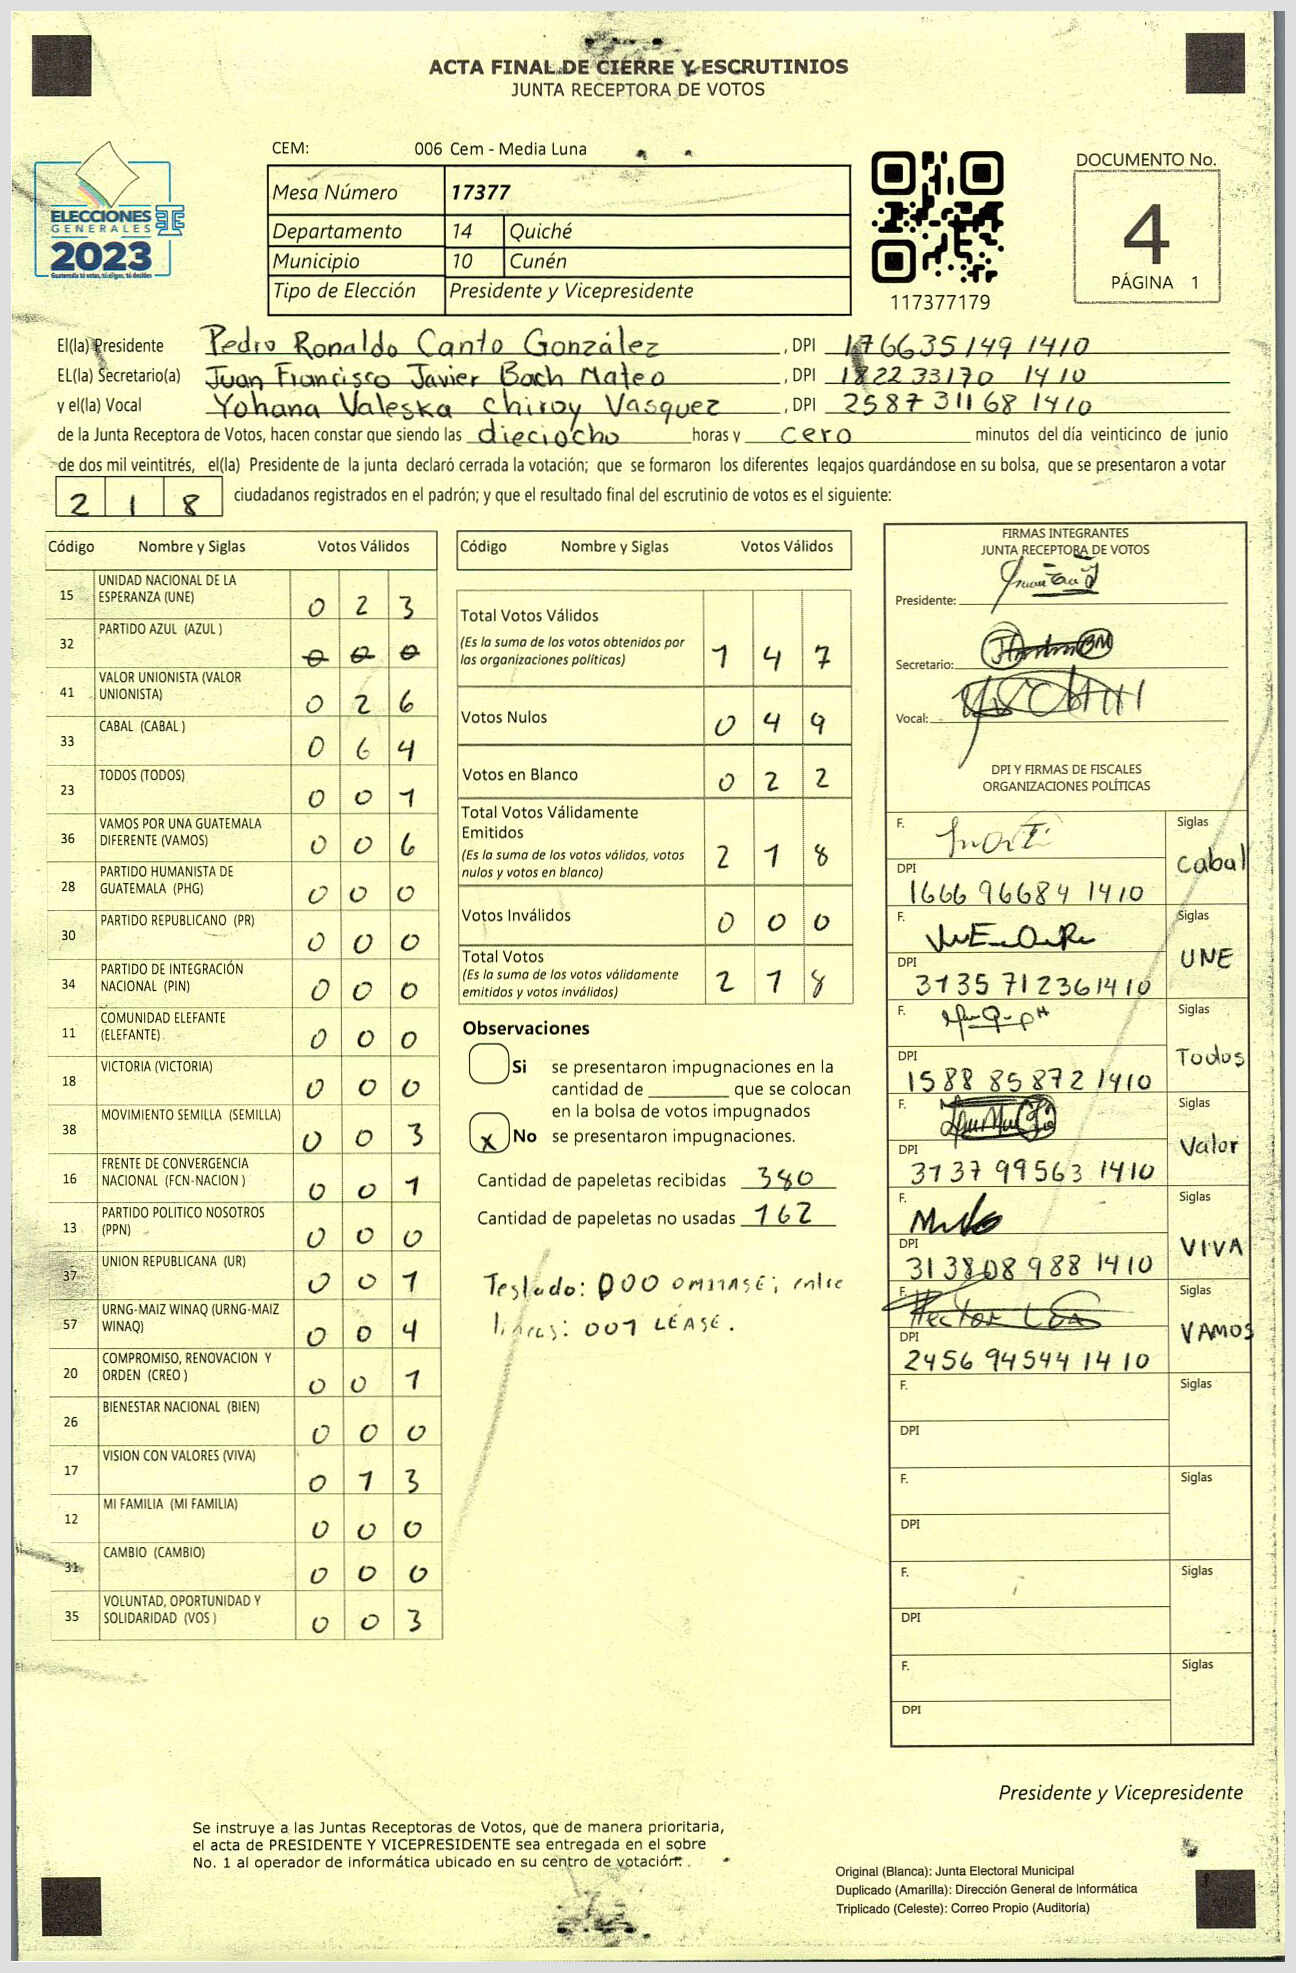 ACTA FINAL DE CIERRE Y ESCRUTINIOS
JUNTA RECEPTORA DE VOTOS
CEM: 006 Cem - Media Luna
ELECCIONES
GENERALES
2023
Guatemala tú votas, tú eliges, tú decides
Mesa Número 17377
Departamento 14 Quiché
Municipio 10 Cunén
Tipo de Elección Presidente y Vicepresidente
117377179
DOCUMENTO No.
4
PÁGINA 1
El(la) Presidente Pedro Ronaldo Canto González , DPI 176635149 1410
EL(la) Secretario(a) Juan Francisco Javier Bach Mateo , DPI 182233170 1410
y el(la) Vocal Yohana Valeska Chiroy Vasquez , DPI 2587 31168 1410
de la Junta Receptora de Votos, hacen constar que siendo las dieciocho horas y cero minutos del día veinticinco de junio
de dos mil veintitrés, el(la) Presidente de la junta declaró cerrada la votación; que se formaron los diferentes legajos guardándose en su bolsa, que se presentaron a votar
2 1 8 ciudadanos registrados en el padrón; y que el resultado final del escrutinio de votos es el siguiente:
Código Nombre y Siglas Votos Válidos
15 UNIDAD NACIONAL DE LA ESPERANZA (UNE) 0 2 3
32 PARTIDO AZUL (AZUL ) 0 0 0
41 VALOR UNIONISTA (VALOR UNIONISTA) 0 2 6
33 CABAL (CABAL ) 0 6 4
23 TODOS (TODOS) 0 0 1
36 VAMOS POR UNA GUATEMALA DIFERENTE (VAMOS) 0 0 6
28 PARTIDO HUMANISTA DE GUATEMALA (PHG) 0 0 0
30 PARTIDO REPUBLICANO (PR) 0 0 0
34 PARTIDO DE INTEGRACIÓN NACIONAL (PIN) 0 0 0
11 COMUNIDAD ELEFANTE (ELEFANTE) 0 0 0
18 VICTORIA (VICTORIA) 0 0 0
38 MOVIMIENTO SEMILLA (SEMILLA) 0 0 3
16 FRENTE DE CONVERGENCIA NACIONAL (FCN-NACION ) 0 0 1
13 PARTIDO POLITICO NOSOTROS (PPN) 0 0 0
37 UNION REPUBLICANA (UR) 0 0 1
57 URNG-MAIZ WINAQ (URNG-MAIZ WINAQ) 0 0 4
20 COMPROMISO, RENOVACION Y ORDEN (CREO ) 0 0 1
26 BIENESTAR NACIONAL (BIEN) 0 0 0
17 VISION CON VALORES (VIVA) 0 1 3
12 MI FAMILIA (MI FAMILIA) 0 0 0
31 CAMBIO (CAMBIO) 0 0 0
35 VOLUNTAD, OPORTUNIDAD Y SOLIDARIDAD (VOS ) 0 0 3
Código Nombre y Siglas Votos Válidos
Total Votos Válidos 1 4 7
(Es la suma de los votos obtenidos por
las organizaciones políticas)
Votos Nulos 0 4 9
Votos en Blanco 0 2 2
Total Votos Válidamente
Emitidos 2 1 8
(Es la suma de los votos válidos, votos
nulos y votos en blanco)
Votos Inválidos 0 0 0
Total Votos 2 1 8
(Es la suma de los votos válidamente
emitidos y votos inválidos)
Observaciones
Si se presentaron impugnaciones en la
cantidad de ________ que se colocan
en la bolsa de votos impugnados
x No se presentaron impugnaciones.
Cantidad de papeletas recibidas 380
Cantidad de papeletas no usadas 162
Testado: 000 OMITASE; entre
lineas: 001 LÉASE.
FIRMAS INTEGRANTES
JUNTA RECEPTORA DE VOTOS
Presidente:
Secretario:
Vocal:
DPI Y FIRMAS DE FISCALES
ORGANIZACIONES POLÍTICAS
F. Siglas
Cabal
DPI 1666 96684 1410
F. Siglas
UNE
DPI 3135 71236 1410
F. Siglas
Todos
DPI 1588 85872 1410
F. Siglas
Valor
DPI 3137 99563 1410
F. Siglas
VIVA
DPI 313808988 1410
F. Siglas
VAMOS
DPI 2456 94544 1410
F. Siglas
DPI
F. Siglas
DPI
F. Siglas
DPI
F. Siglas
DPI
Presidente y Vicepresidente
Se instruye a las Juntas Receptoras de Votos, que de manera prioritaria,
el acta de PRESIDENTE Y VICEPRESIDENTE sea entregada en el sobre
No. 1 al operador de informática ubicado en su centro de votación.
Original (Blanca): Junta Electoral Municipal
Duplicado (Amarilla): Dirección General de Informática
Triplicado (Celeste): Correo Propio (Auditoría)